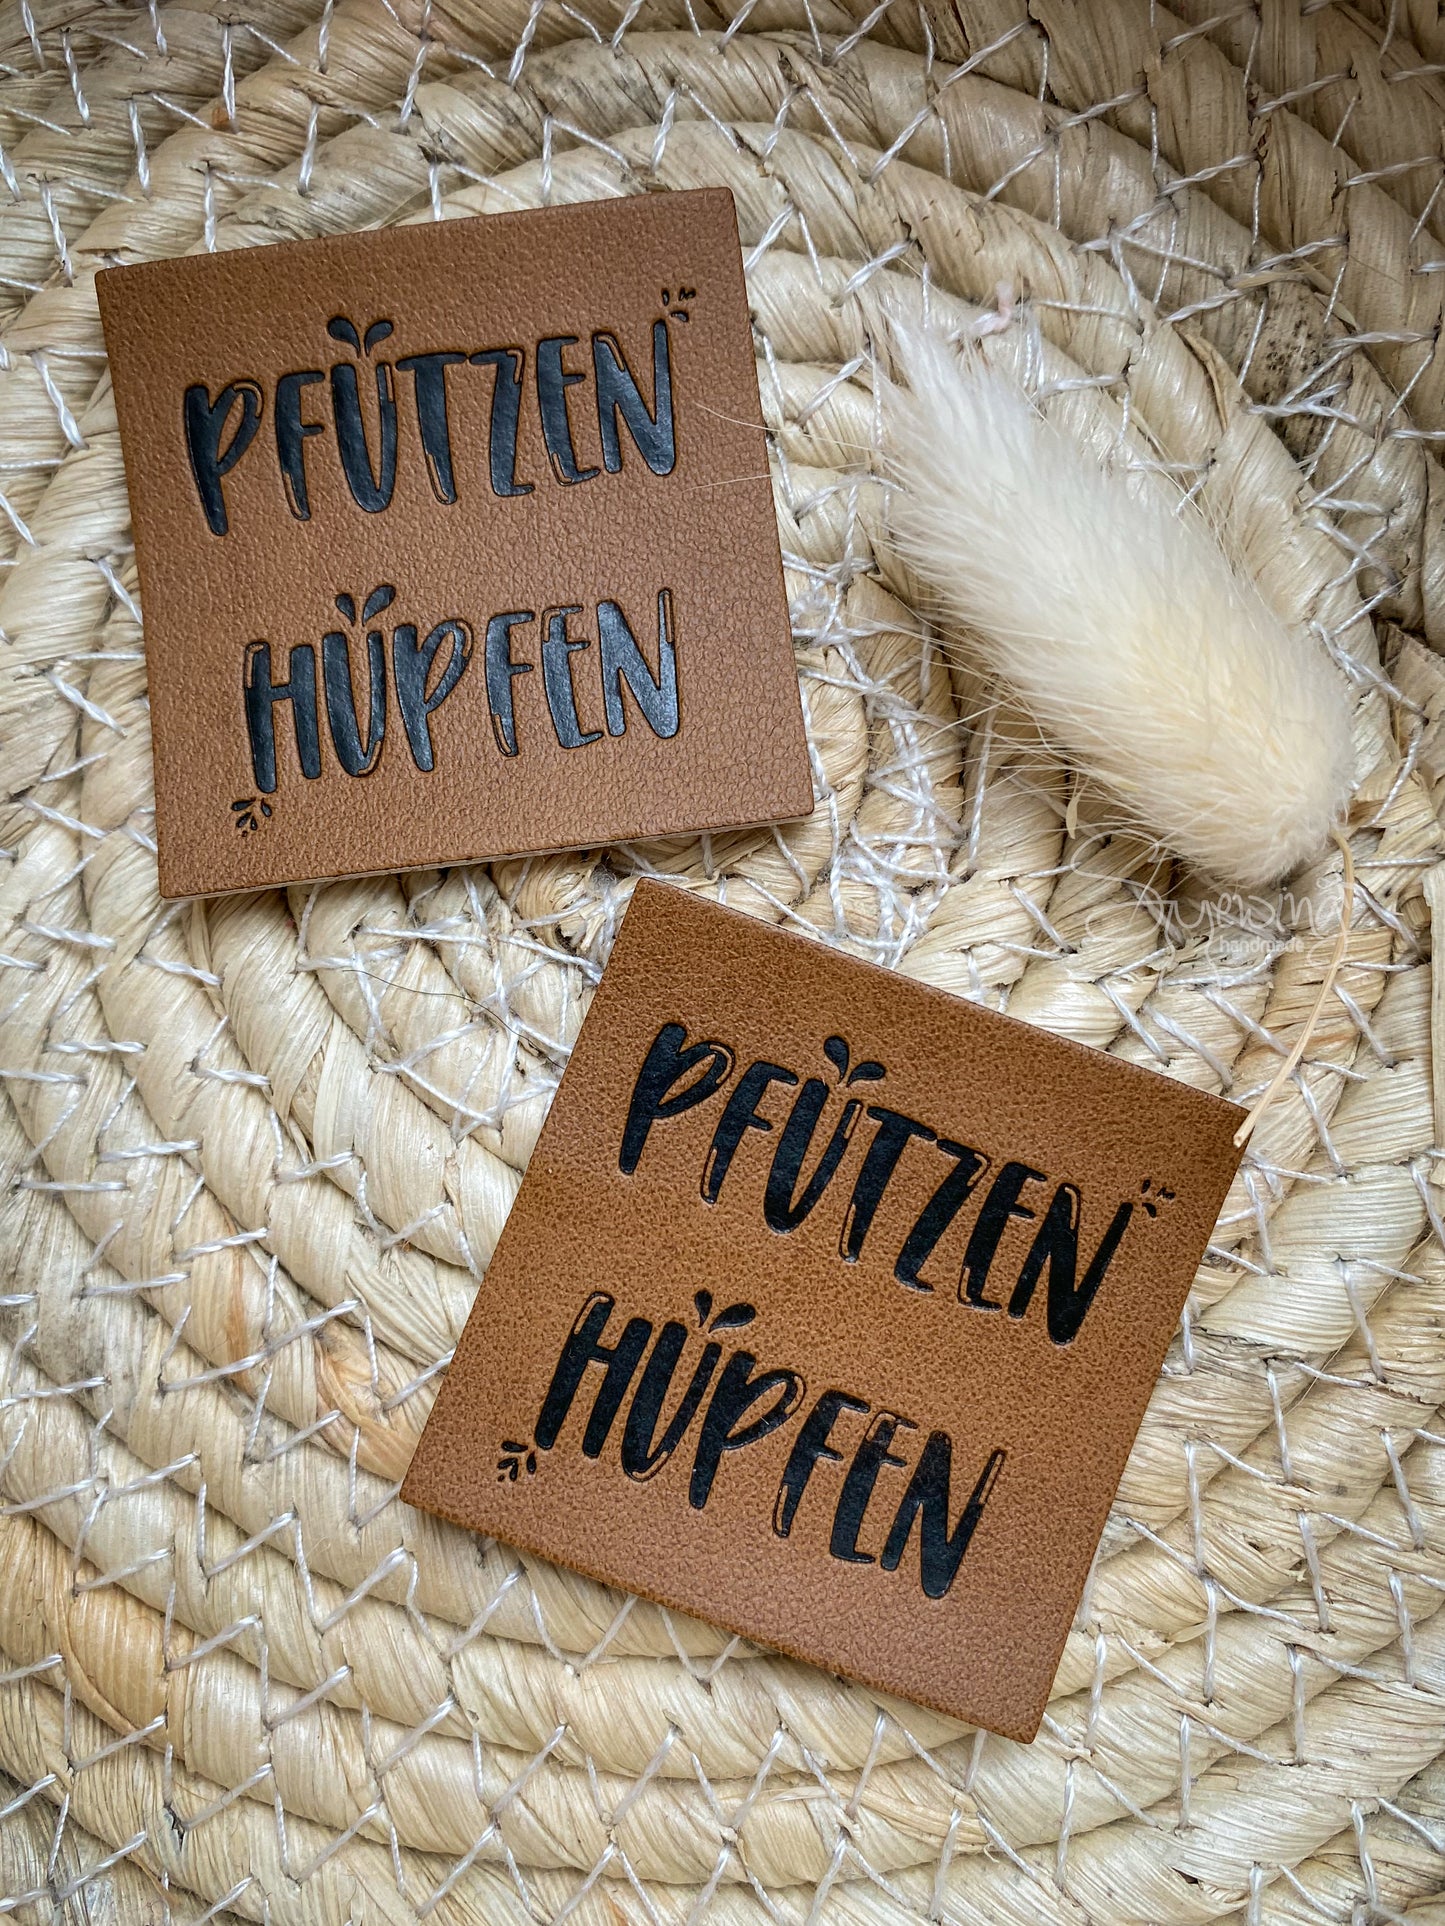 PFÜTZEN
HÜPFEN
PFÜTZEN
HÜPFEN
handmade